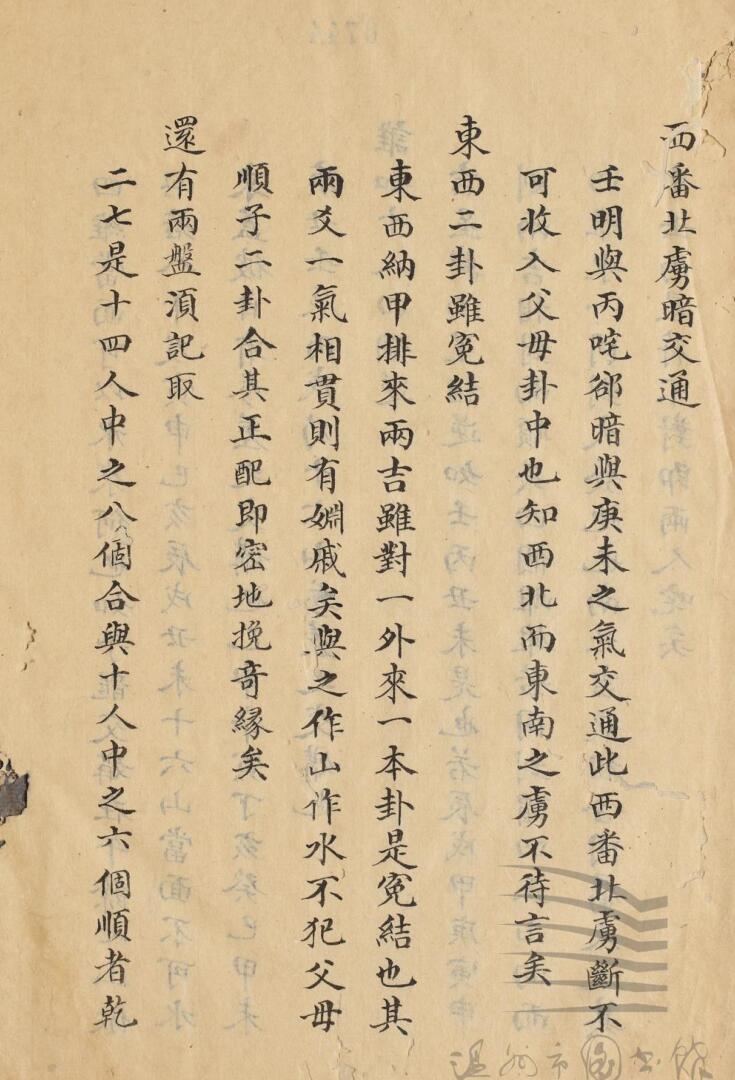 西番北虜暗交通
壬明與丙咤郤暗與庚未之氣交通此西番北虜斷不
可收入父母卦中也知西北而東南之虜不待言矣
東西二卦雖寃結
東西納甲排來兩吉雖對一外來一本卦是寃結也其
兩爻一氣相貫則有婣戚矣與之作山作水不犯父母
順子二卦合其正配即密地挽奇緣矣
還有兩盤須記取
二七是十四人中之八個合與十人中之六個順者乾
溫州市圖書館